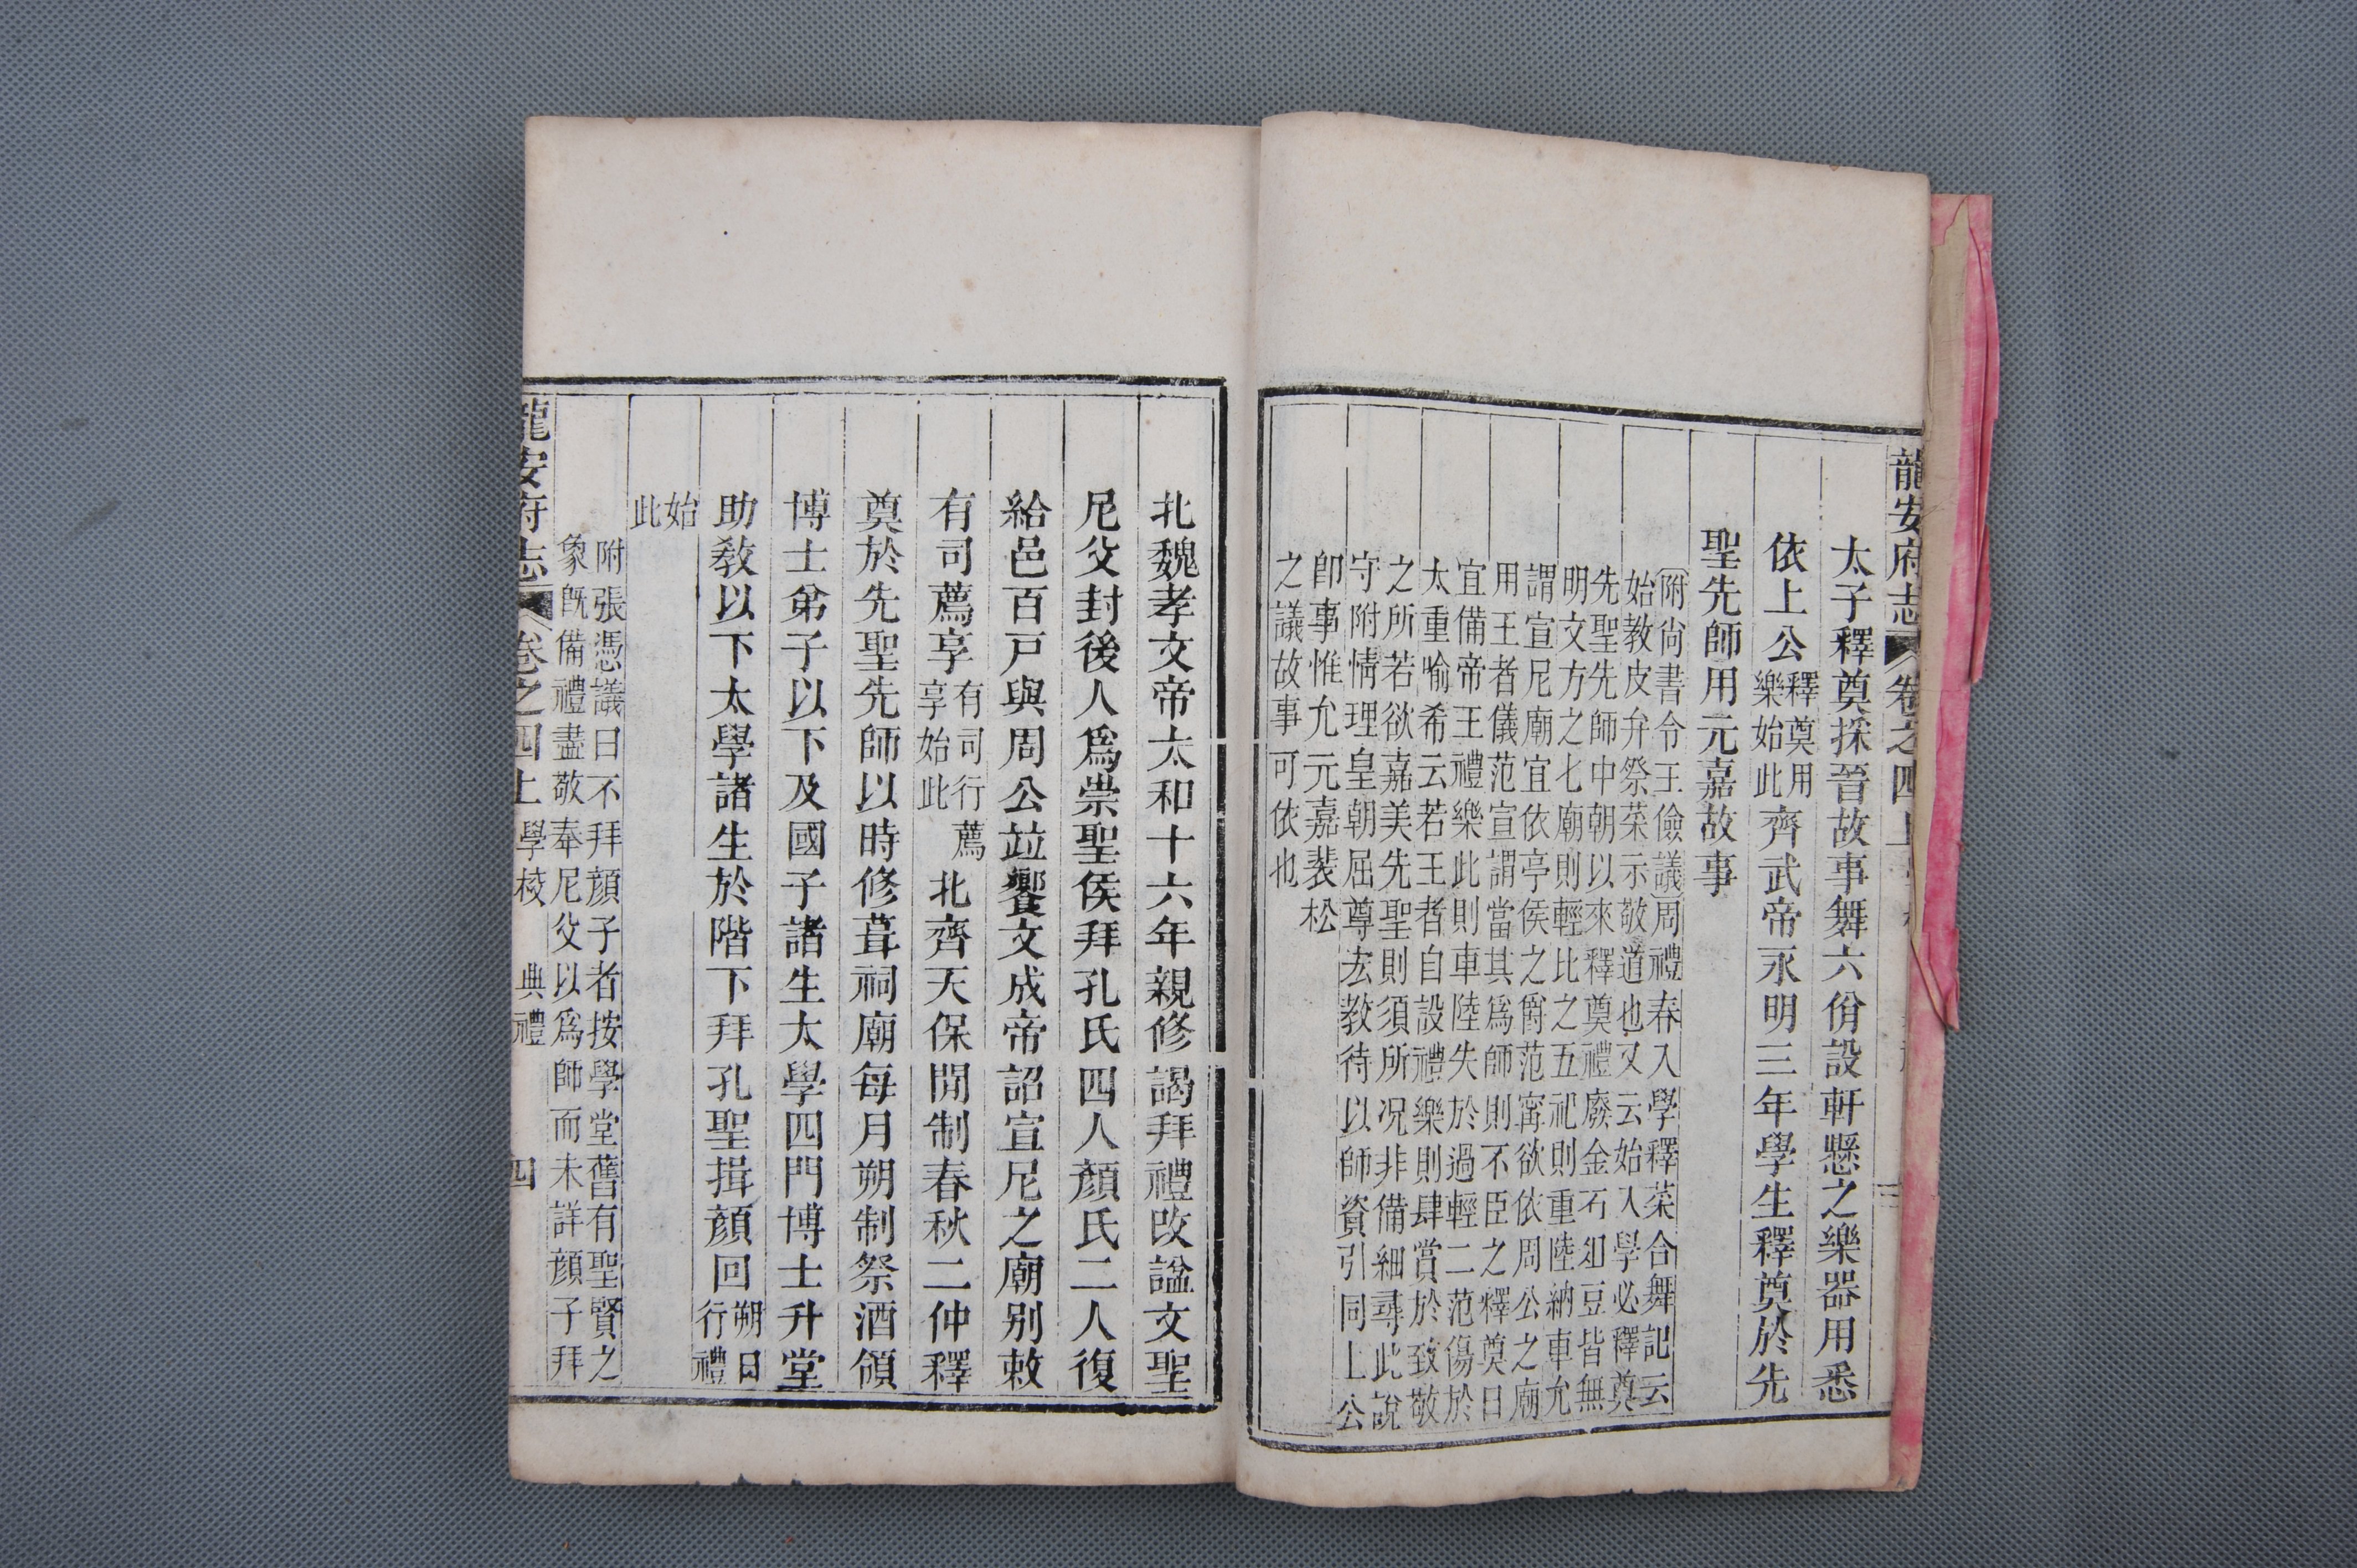 龍安府志 卷之四上
太子釋奠採晉故事舞六佾設軒懸之樂器用悉
依上公釋奠用樂始此齊武帝永明三年學生釋奠於先
聖先師用元嘉故事
附尚書令王儉議周禮春入學釋菜合舞記云
始教皮弁祭菜示敬道也又云始入學必釋奠
先聖先師中朝以來釋奠禮廢金石俎豆皆無
明文方之七廟則輕比之五祀則重陸納車允
謂宣尼廟宜依亭侯之爵范甯欲依周公之廟
用王者儀范宣謂當其爲師則不臣之釋奠日
宜備帝王禮樂此則車陸失於過輕二范傷於
太重喻希云若王者自設禮樂則肆賞於致敬
之所若欲嘉美先聖則須所况非備細尋此說
守附情理皇朝屈尊宏教待以師資引同上公
卽事惟允元嘉裴松
之議故事可依也
北魏孝文帝太和十六年親修謁拜禮改諡文聖
尼父封後人爲崇聖侯拜孔氏四人顏氏二人復
給邑百戸與周公竝饗文成帝詔宣尼之廟别敕
有司薦享有司行薦享始此北齊天保間制春秋二仲釋
奠於先聖先師以時修葺祠廟每月朔制祭酒領
博士弟子以下及國子諸生太學四門博士升堂
助教以下太學諸生於階下拜孔聖揖顏回朔日行禮
始此
附張憑議曰不拜顏子者按學堂舊有聖賢之
象旣備禮盡敬奉尼父以爲師而未詳顏子拜
龍安府志 卷之四上 學校 典禮 四